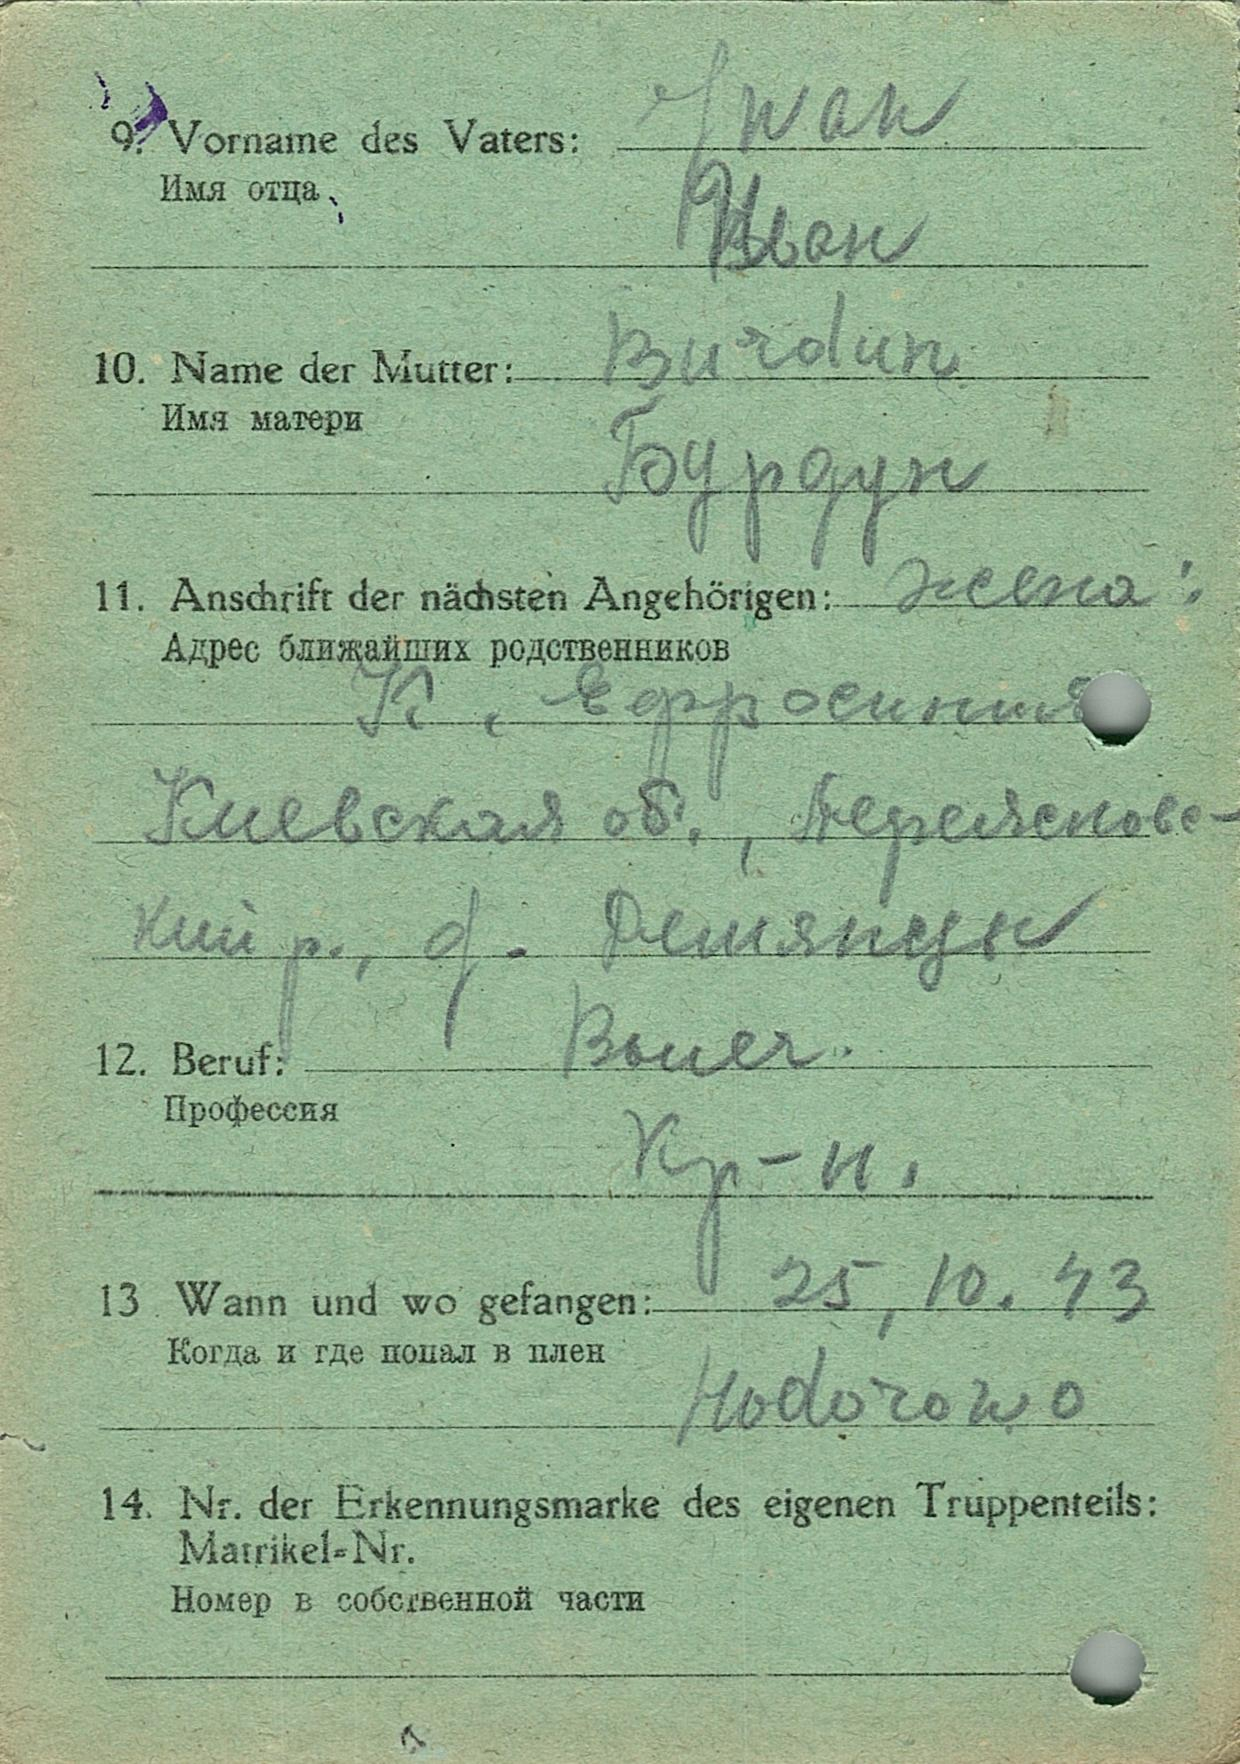 9. Vorname des Vaters: Iwan
Имя отца
Иван
10. Name der Mutter: Burdun
Имя матери
Бурдун
11. Anschrift der nächsten Angehörigen: жена:
Адрес ближайших родственников
К. Ефросиния
Киевская об., Переясновс-
кий р., д. Демянцы
12. Beruf: Bauer.
Профессия
Кр-н.
13 Wann und wo gefangen: 25, 10. 43
Когда и где попал в плен
Hodorowo
14. Nr. der Erkennungsmarke des eigenen Truppenteils:
Matrikel-Nr.
Номер в собственной части